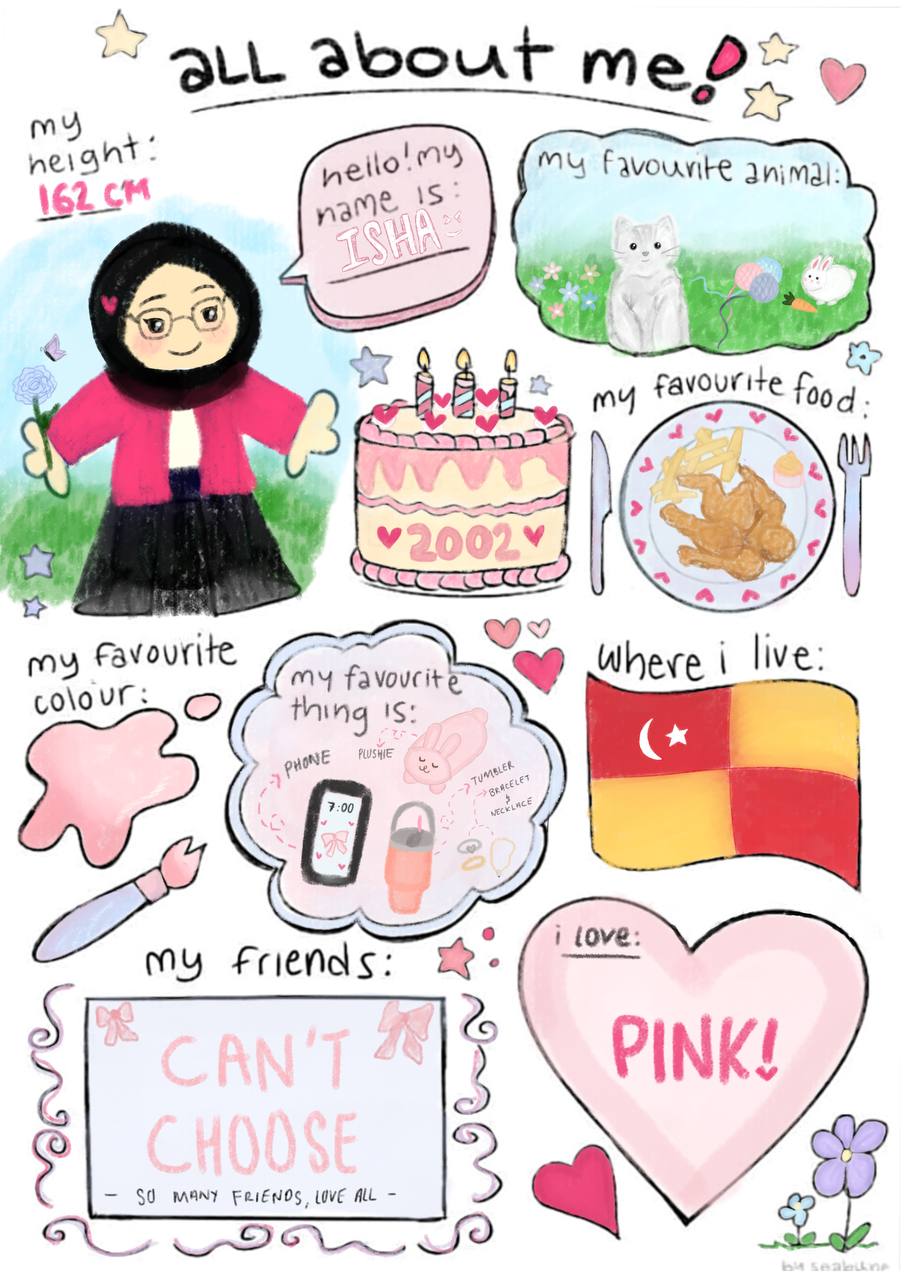 all about me!
my
height:
162 CM
hello! my
name is:
ISHA
my favourite animal:
my favourite food:
2002
my favourite
colour:
my favourite
thing is:
PHONE
PLUSHIE
TUMBLER
BRACELET
&
NECKLACE
7:00
where i live:
my friends:
CAN'T
CHOOSE
- SO MANY FRIENDS, LOVE ALL -
i love:
PINK!